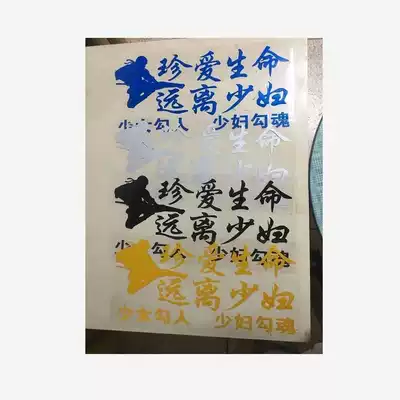 珍爱生命
远离少妇
少女勾人 少妇勾魂
珍爱生命
远离少妇
珍爱生命
远离少妇
少女勾人 少妇勾魂
珍爱生命
远离少妇
少女勾人 少妇勾魂